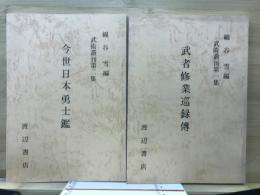 綿谷 雪編
武術叢刊第一集
武者修業巡録傳
渡辺書店
綿谷 雪編
武術叢刊第二集
今世日本勇士鑑
渡辺書店